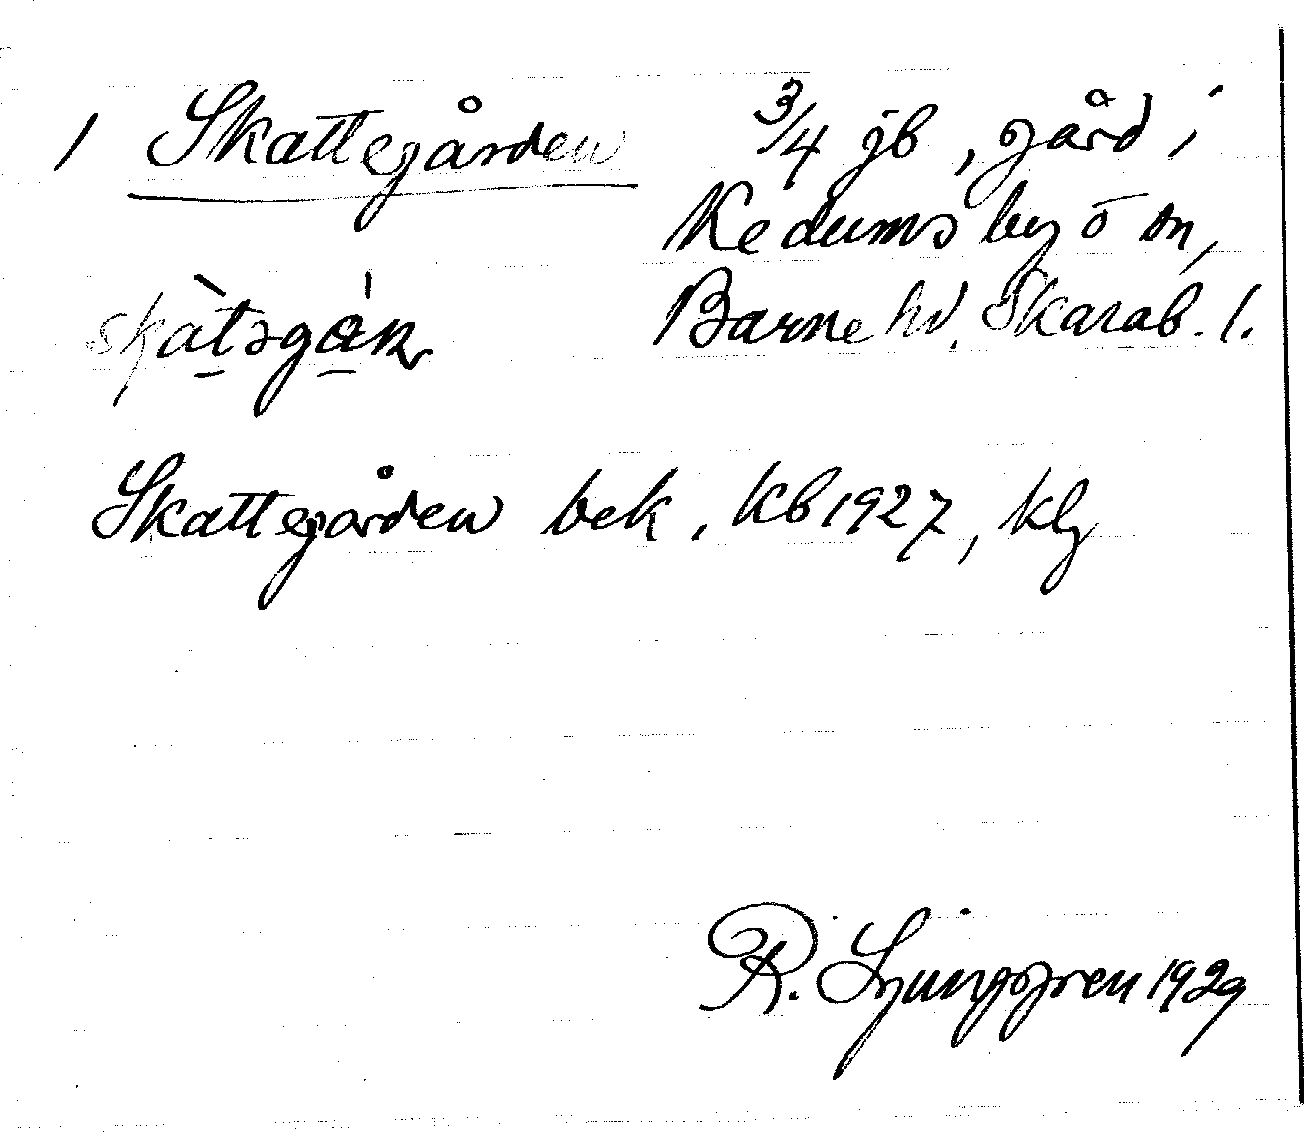 1 Skattegården 3/4 jb, gård i
Kedums by o sn,
skàtəgá̊ɳ Barne hd. Skarab. l.
Skattegården bek. Kb 1927, klg
R. Ljunggren 1929